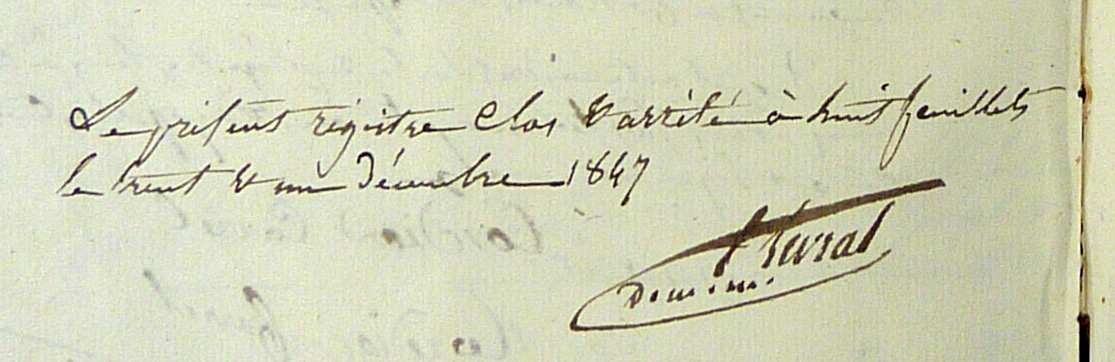 Le présent régistre clos & arrêté à huit feuillets
le trent & un décembre 1847